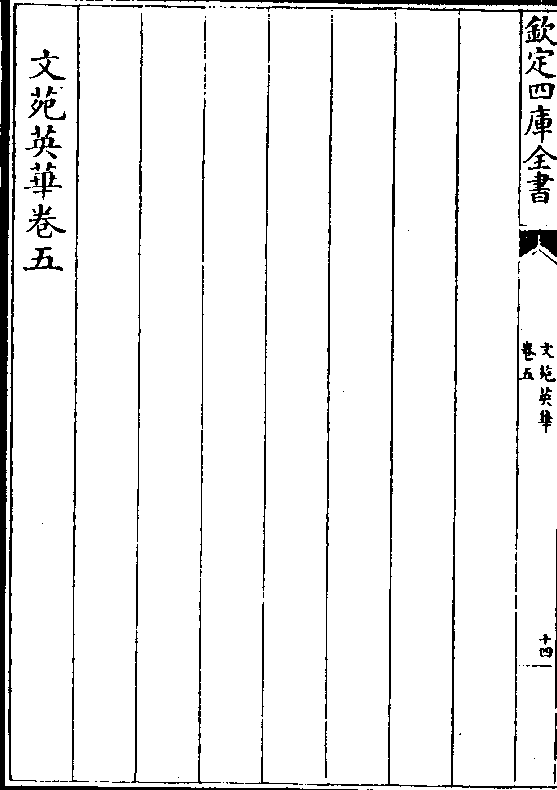 欽定四庫全書
文苑英華
卷五
十四
文苑英華卷五